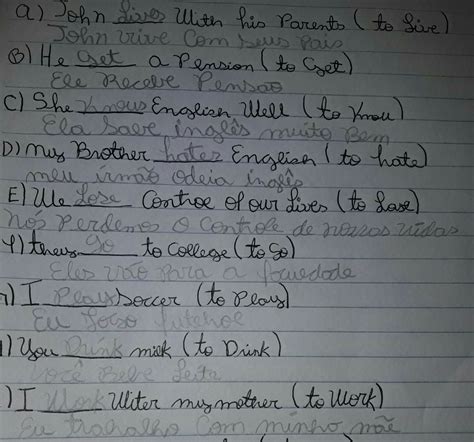 a) John Lives With his Parents (to live)
John vive Com seus Pais
B) He Get a Pension (to Get)
Ele Recebe Pensão
C) She Knows English Well (to Know)
Ela Sabe inglês muito Bem
D) my Brother hates English (to hate)
meu irmão odeia inglês
E) We Lose Controe of our Lives (to Lose)
Nós Perdemos o Controle de nossas vidas
f) they Go to College (to Go)
Eles vão Para a faculdade
) I Play soccer (to Play)
Eu Jogo futebol
) You Drink milk (to Drink)
você Bebe Leite
) I Work Witer my mother (to Work)
Eu trabalho Com minha mãe